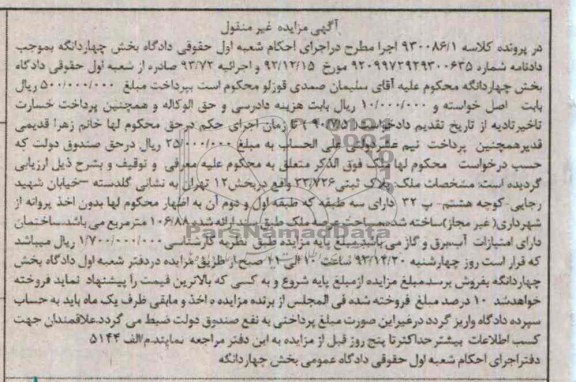 آگهی مزایده غیر منقول
در پرونده کلاسه ۹۳۰۰۸۶/۱ اجرا مطرح دراجرای احکام شعبه اول حقوقی دادگاه بخش چهاردانگه بموجب
دادنامه شماره ۹۲۰۹۹۷۲۹۲۹۳۰۰۶۳۵ مورخ ۹۲/۱۲/۱۵ و اجرائیه ۹۳/۷۲ صادره از شعبه اول حقوقی دادگاه
بخش چهاردانگه محکوم علیه آقای سلیمان صمدی قوزلو محکوم است بپرداخت مبلغ ۵۰۰/۰۰۰/۰۰۰ ریال
بابت اصل خواسته و ۱۰/۰۰۰/۰۰۰ ریال بابت هزینه دادرسی و حق الوکاله و همچنین پرداخت خسارت
تاخیرتادیه از تاریخ تقدیم دادخواست زمان اجرای حکم درحق محکوم لها خانم زهرا قدیمی
قدیرهمچنین پرداخت نیم عشر دولتی علی الحساب به مبلغ ۲۵/۰۰۰/۰۰۰ ریال درحق صندوق دولت که
حسب درخواست محکوم لها ملک فوق الذکر متعلق به محکوم علیه معرفی و توقیف و بشرح ذیل ارزیابی
گردیده است: مشخصات ملک: پلاک ثبتی ۳۳/۷۲۶ واقع دربخش ۱۲ تهران به نشانی گلدسته -خیابان شهید
رجایی-کوچه هشتم- پ ۳۲ دارای سه طبقه که طبقه اول و دوم آن به اظهار محکوم لها بدون اخذ پروانه از
شهرداری( غیر مجاز)ساخته شده مساحت عرصه ملک طبق سند ارائه شده ۱۰۶/۸۸ مترمربع می باشد.ساختمان
دارای امتیازات آب،برق و گاز می باشد.مبلغ پایه مزایده طبق نظریه کارشناسی ۱/۷۰۰/۰۰۰/۰۰۰ ریال میباشد
که قرار است روز چهارشنبه ۹۳/۱۲/۲۰ ساعت ۱۰ الی ۱۱ صبح از طریق مزایده دردفتر شعبه اول دادگاه بخش
چهاردانگه بفروش برسد.مبلغ مزایده ازمبلغ پایه شروع و به کسی که بالاترین قیمت را پیشنهاد نماید فروخته
خواهدشد ۱۰ درصد مبلغ فروخته شده فی المجلس از برنده مزایده اخذ و مابقی ظرف یک ماه باید به حساب
سپرده دادگاه واریز گردد درغیراین صورت مبلغ پرداختی به نفع صندوق دولت ضبط می گردد.علاقمندان جهت
کسب اطلاعات بیشترحداکثرتا پنج روز قبل از مزایده به این دفتر مراجعه نمایند.م/الف ۵۱۴۴
دفتراجرای احکام شعبه اول حقوقی دادگاه عمومی بخش چهاردانگه
ParsNamadData